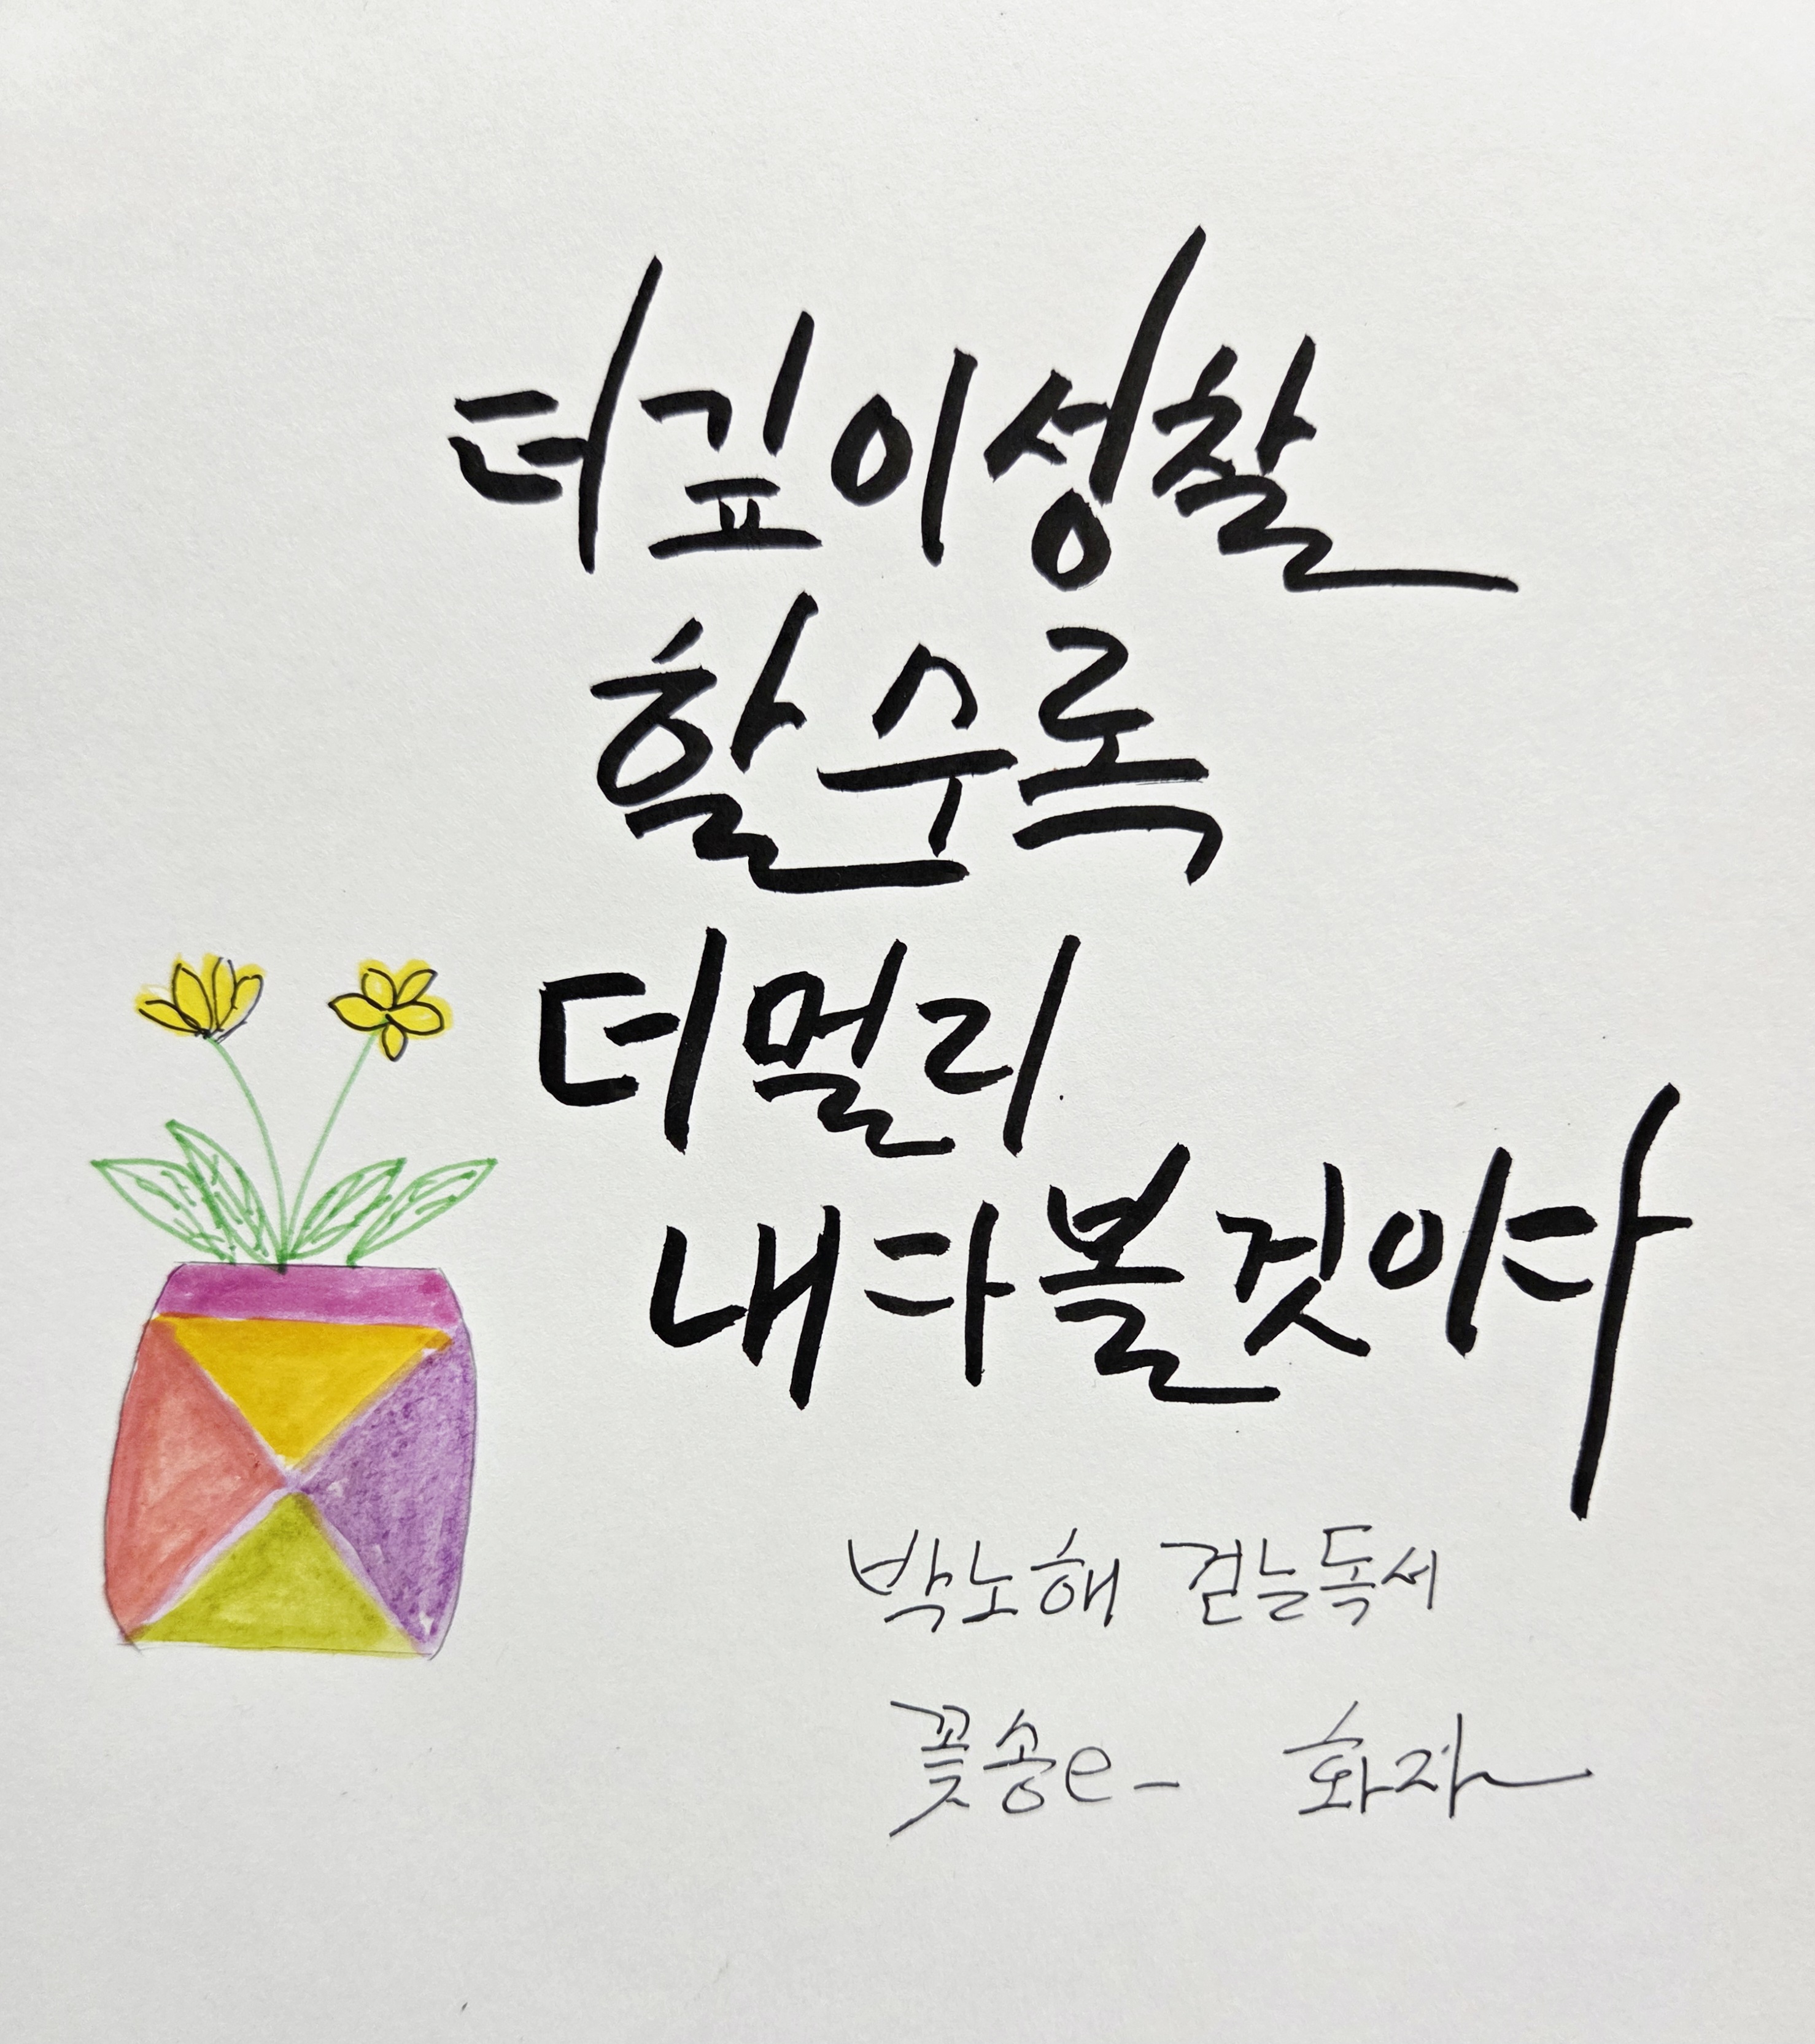 더 깊이 성찰
할수록
더 멀리
내다볼 것이다
박노해 걷는독서
꽃송e- 화자